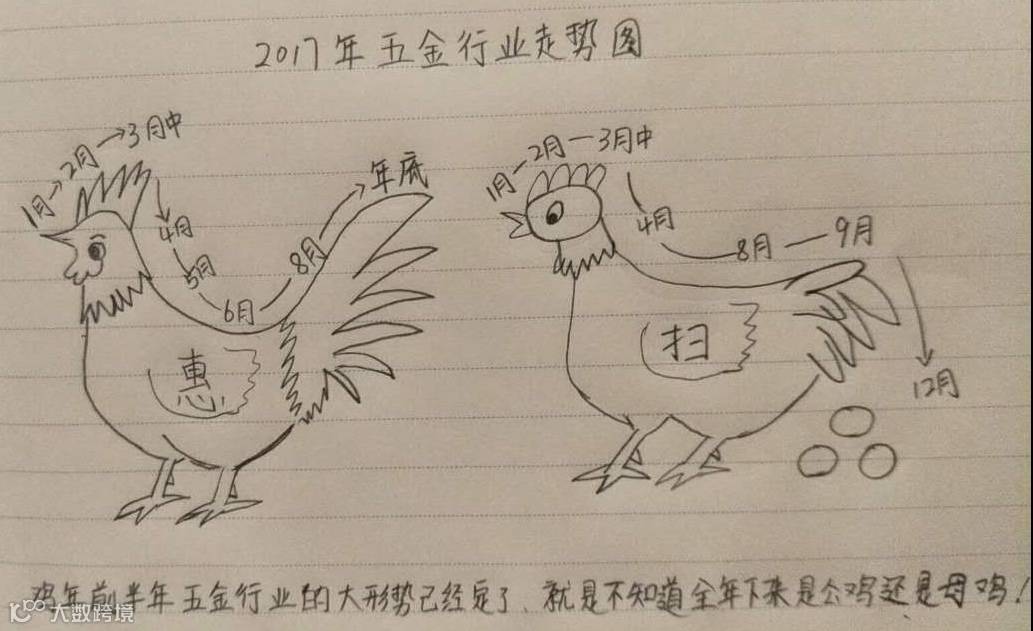 2017年五金行业走势图
1月→2月→3月中
4月
5月
6月
8月
年底
惠
1月-2月-3月中
4月
8月—9月
12月
扫
鸡年前半年五金行业的大形势已经定了、就是不知道全年下来是公鸡还是母鸡!
大数跨境